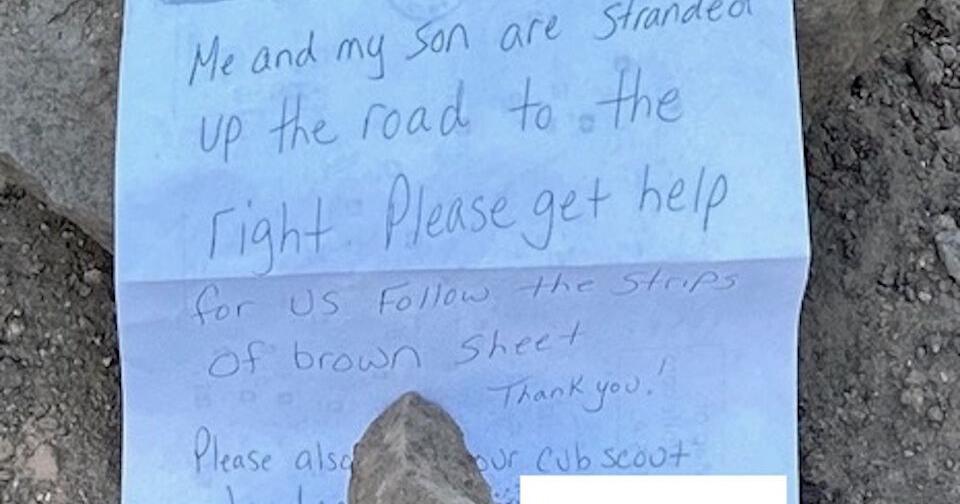 Me and my son are stranded
up the road to the
right. Please get help
for us Follow the strips
of brown sheet
Thank you!
Please also our cub scout